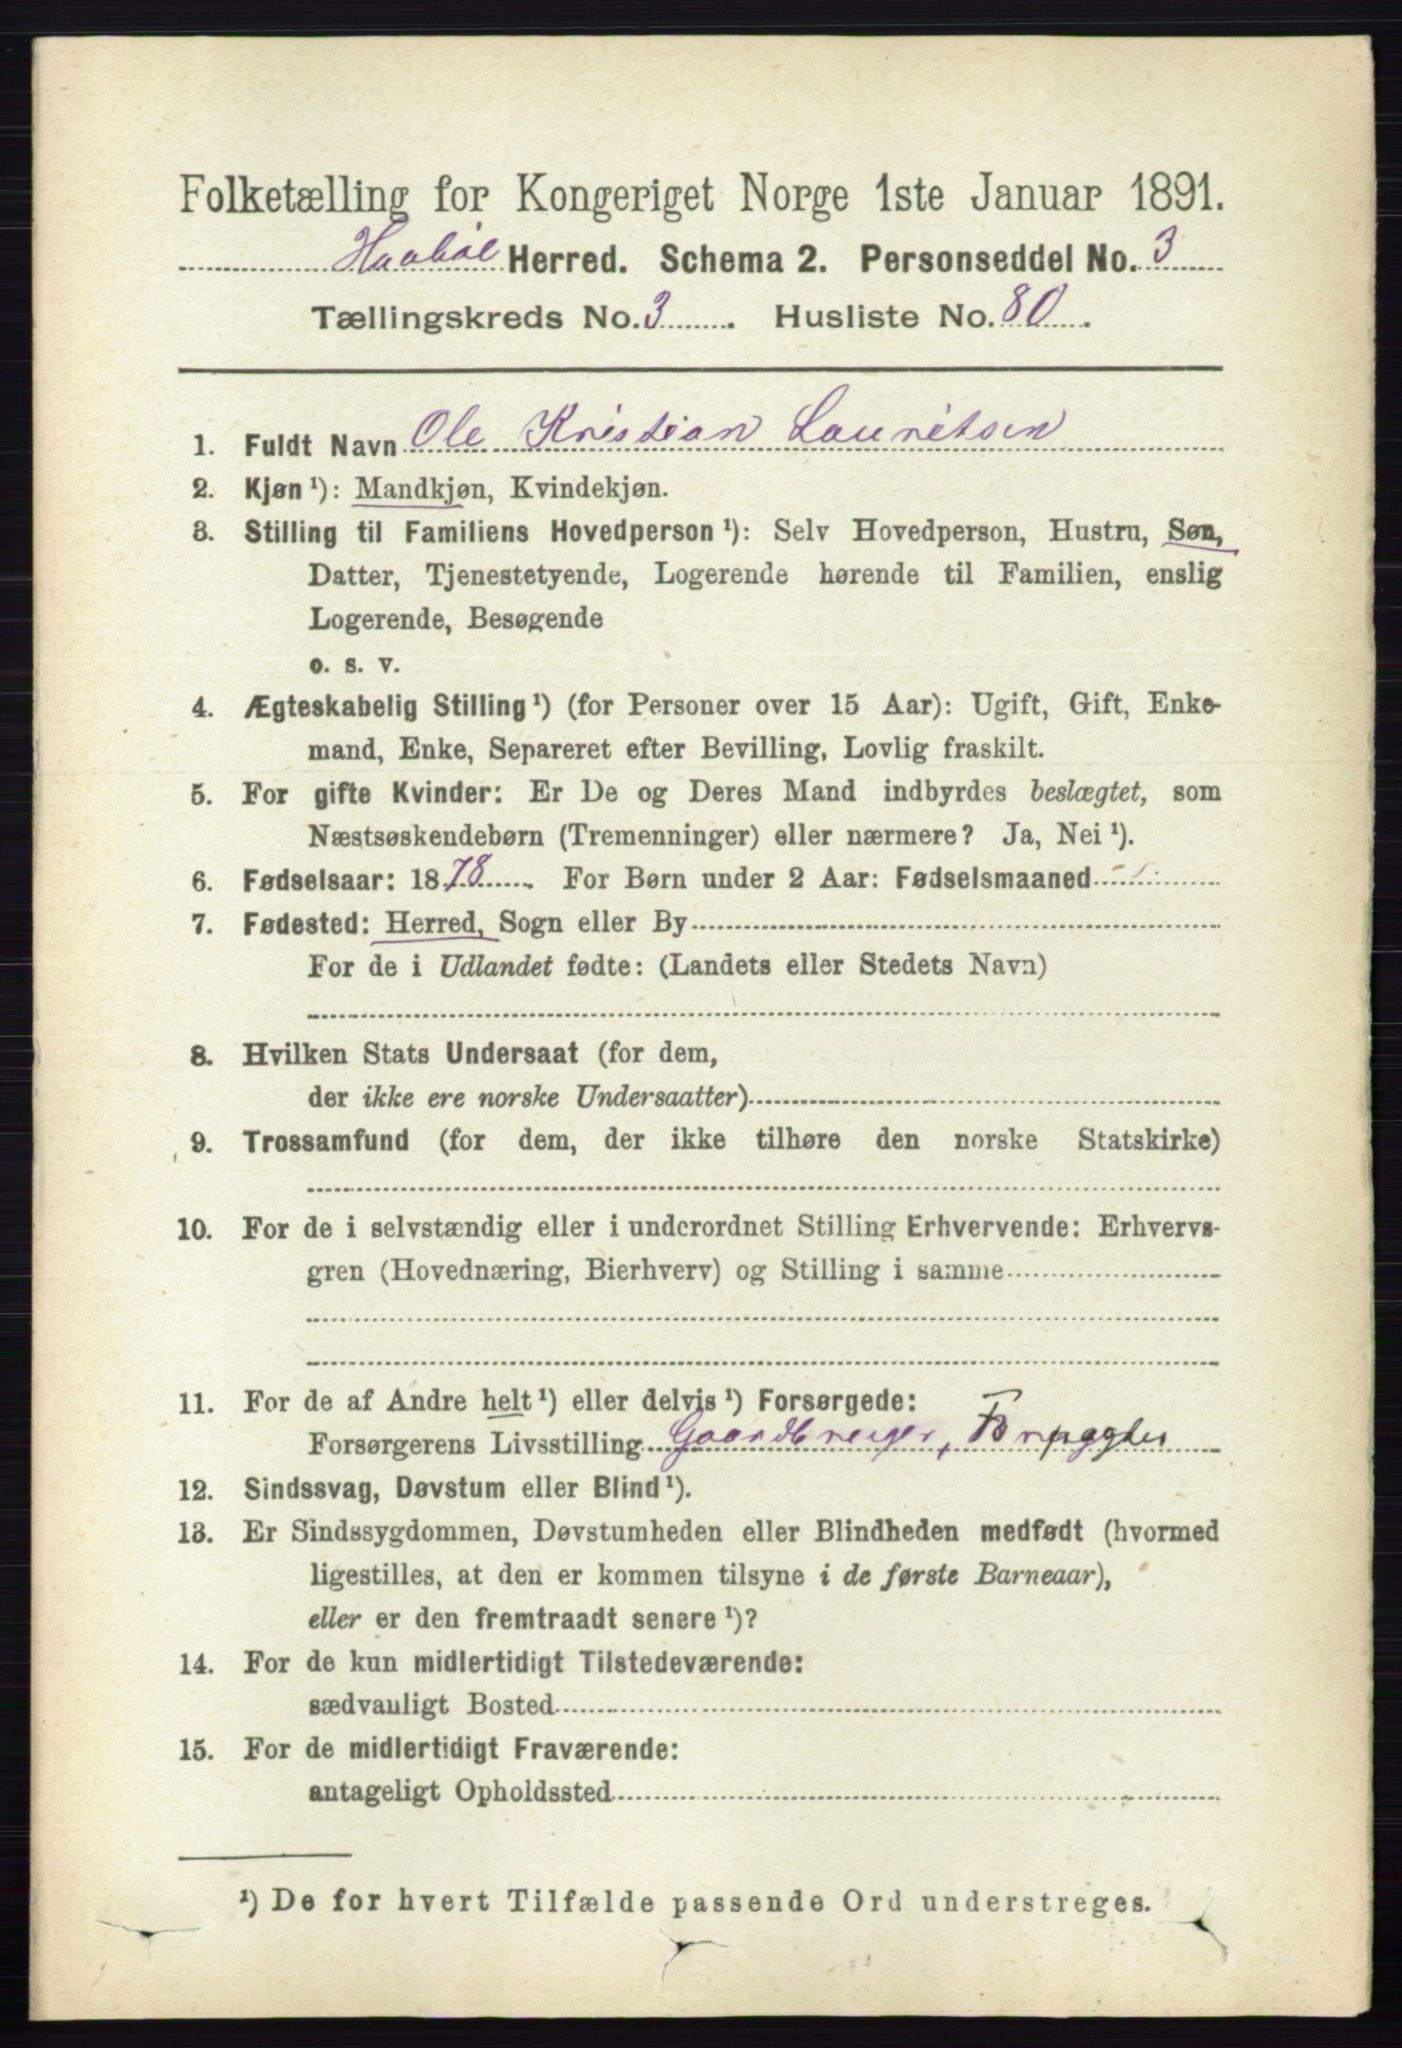 Folketælling for Kongeriget Norge 1ste Januar 1891.
Haabøl Herred. Schema 2. Personseddel No. 3
Tællingskreds No. 3. Husliste No. 80.
1. Fuldt Navn Ole Kristian Lauritsen
2. Kjøn¹): Mandkjøn, Kvindekjøn.
3. Stilling til Familiens Hovedperson¹): Selv Hovedperson, Hustru, Søn,
Datter, Tjenestetyende, Logerende hørende til Familien, enslig
Logerende, Besøgende
o. s. v.
4. Ægteskabelig Stilling¹) (for Personer over 15 Aar): Ugift, Gift, Enke-
mand, Enke, Separeret efter Bevilling, Lovlig fraskilt.
5. For gifte Kvinder: Er De og Deres Mand indbyrdes beslægtet, som
Næstsøskendebørn (Tremenninger) eller nærmere? Ja, Nei¹).
6. Fødselsaar: 1878. For Børn under 2 Aar: Fødselsmaaned
7. Fødested: Herred, Sogn eller By
For de i Udlandet fødte: (Landets eller Stedets Navn)
8. Hvilken Stats Undersaat (for dem,
der ikke ere norske Undersaatter)
9. Trossamfund (for dem, der ikke tilhøre den norske Statskirke)
10. For de i selvstændig eller i underordnet Stilling Erhvervende: Erhvervs-
gren (Hovednæring, Bierhverv) og Stilling i samme
11. For de af Andre helt¹) eller delvis¹) Forsørgede:
Forsørgerens Livsstilling Gaardbruger,
12. Sindssvag, Døvstum eller Blind¹).
13. Er Sindssygdommen, Døvstumheden eller Blindheden medfødt (hvormed
ligestilles, at den er kommen tilsyne i de første Barneaar),
eller er den fremtraadt senere¹)?
14. For de kun midlertidigt Tilstedeværende:
sædvanligt Bosted
15. For de midlertidigt Fraværende:
antageligt Opholdssted
¹) De for hvert Tilfælde passende Ord understreges.